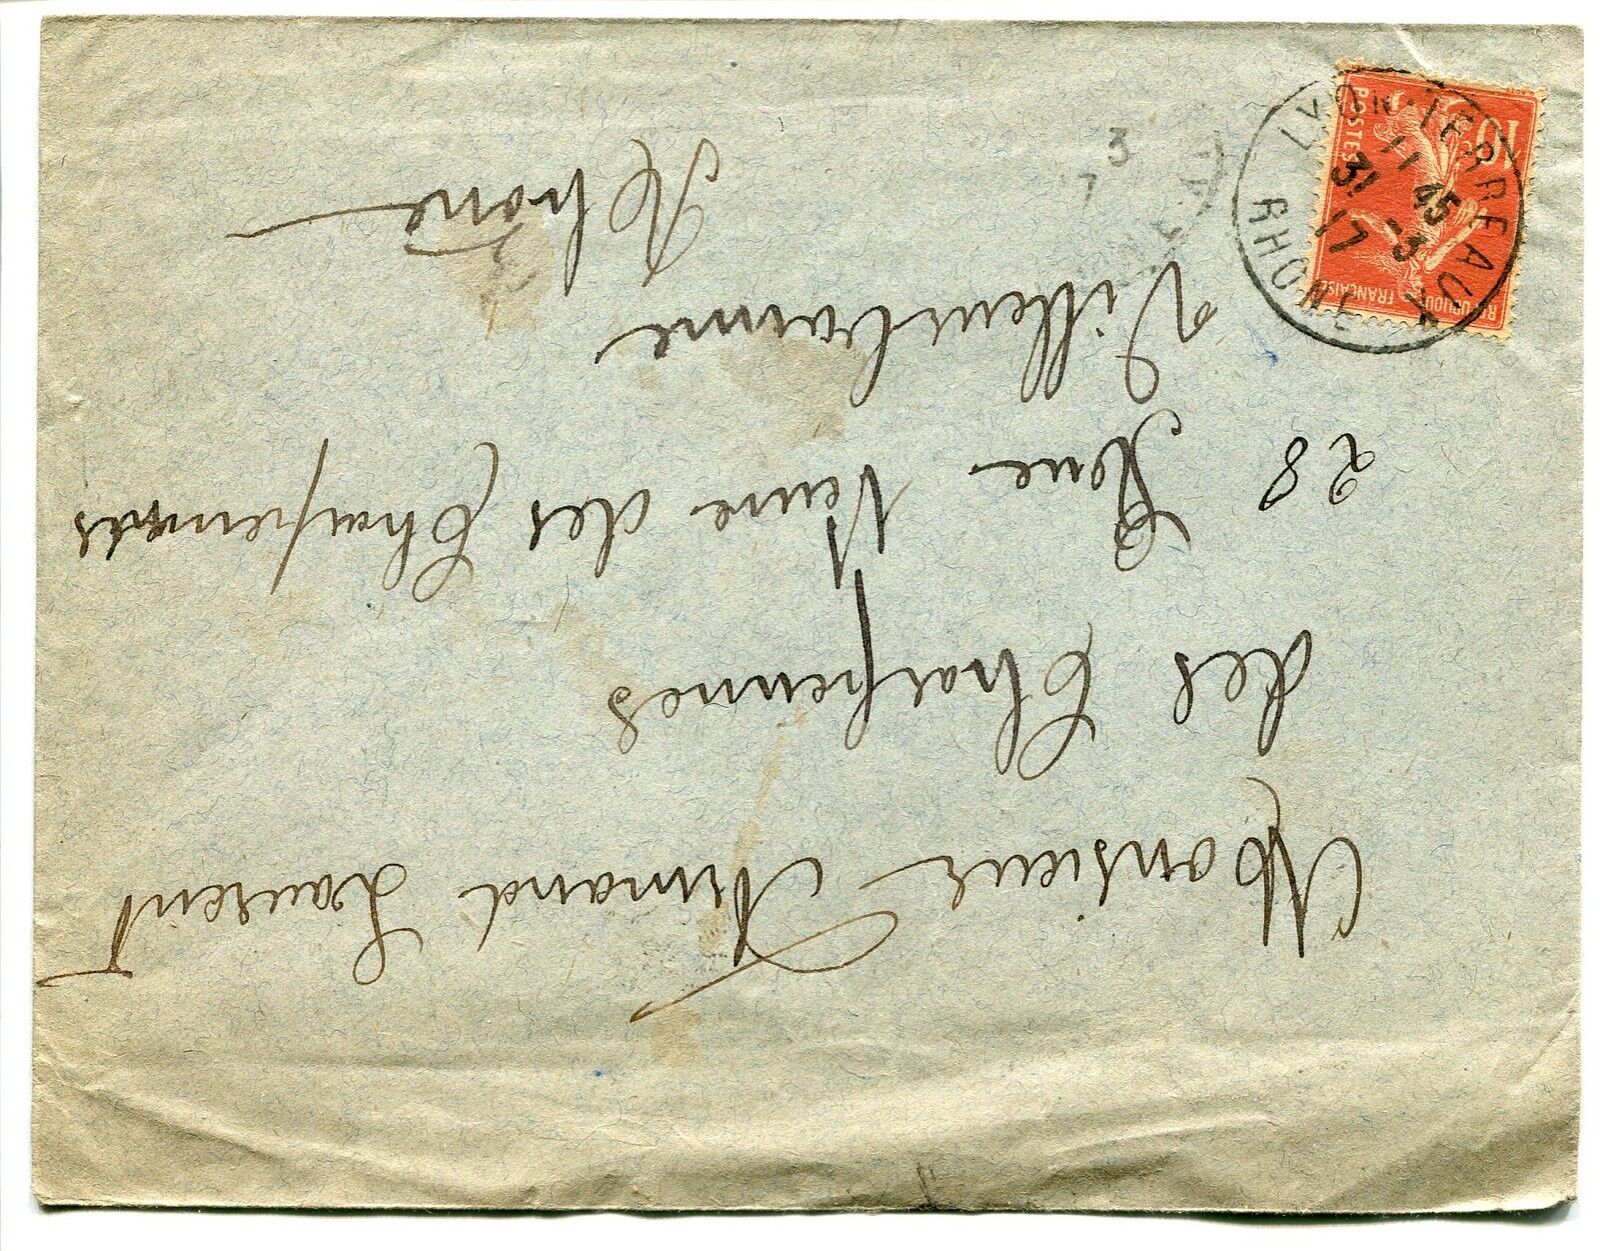 Monsieur Armand Laurent
des Charpennes
28 Rue Neuve des Charpennes
Villeurbanne
Rhône
LYON-TERREAUX
11 45
31 -3
17
RHONE
10c
POSTES
REPUBLIQUE
FRANCAISE
3
7